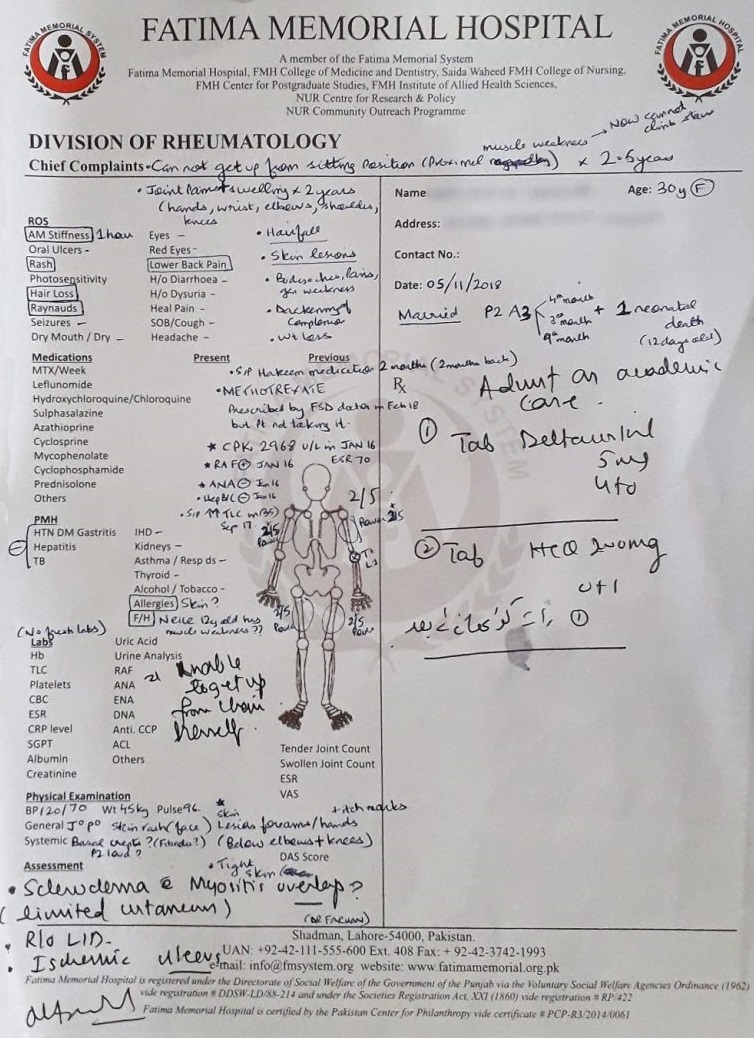 FATIMA MEMORIAL HOSPITAL
FATIMA MEMORIAL SYSTEM
FATIMA MEMORIAL HOSPITAL
A member of the Fatima Memorial System
Fatima Memorial Hospital, FMH College of Medicine and Dentistry, Saida Waheed FMH College of Nursing,
FMH Center for Postgraduate Studies, FMH Institute of Allied Health Sciences,
NUR Centre for Research & Policy
NUR Community Outreach Programme
DIVISION OF RHEUMATOLOGY
muscle weakness → Now cannot climb stairs
Chief Complaints • Can not get up from sitting position (Proximal) x 2.5 years
• Joint Pains + swelling x 2 years
(hands, wrist, elbows, shoulder,
knees
ROS
AM Stiffness 1 hour Eyes –
Oral Ulcers - Red Eyes -
Rash Lower Back Pain
Photosensitivity H/o Diarrhoea –
Hair Loss H/o Dysuria –
Raynauds Heal Pain -
Seizures – SOB/Cough –
Dry Mouth / Dry – Headache –
• Hairfall
• Skin lesions
• Bodyaches, Pains,
weakness
• Darkening of
• wt loss
Name
Age: 30y F
Address:
Contact No.:
Date: 05/11/2018
Married P2 A3 4th month
3rd month
9th month
+ 1 neonatal
death
(12 days old)
Medications Present Previous
MTX/Week
Leflunomide
Hydroxychloroquine/Chloroquine
Sulphasalazine
Azathioprine
Cyclosprine
Mycophenolate
Cyclophosphamide
Prednisolone
Others
• S/P Hakeem medication 2 months (2 months back)
• METHOTREXATE
Prescribed by FSD doctor in Feb 18
but Pt not taking it.
* CPK: 2968 U/L in JAN 16
ESR 70
* RAF + JAN 16
* ANA ⊖ Jan 16
• Hep B/C ⊖ Jan 16
• S/P ↑↑ TLC
Sep 17.
2/5
Power
2/5
Power 2/5
2/5
Power
2/5
Power
Rx
Admit on academic
care.
① Tab
5mg
② Tab HCQ 200mg
① رات کو کھانے کے بعد
PMH
HTN DM Gastritis IHD –
Hepatitis Kidneys –
TB Asthma / Resp ds –
Thyroid -
Alcohol / Tobacco -
Allergies Skin?
F/H Neice 12y old has
muscle weakness??
(No fresh labs)
Labs Uric Acid
Hb Urine Analysis
TLC RAF
Platelets ANA
CBC ENA
ESR DNA
CRP level Anti. CCP
SGPT ACL
Albumin Others
Creatinine
Unable
to get up
from chair
herself.
Tender Joint Count
Swollen Joint Count
ESR
VAS
Physical Examination
BP 120/70 Wt 45kg Pulse 96.
General J° P° Skin rash (face)
* skin + itch marks
Lesions forearms/hands
Systemic Basal crepts? (Fibrosis?) (Below elbows + knees)
P2 loud?
DAS Score
Assessment
• Tight
skin
• Scleroderma c Myositis overlap?
(limited cutaneous)
(DR FARHAN)
• R/o ILD.
• Ischemic ulcers
Shadman, Lahore-54000, Pakistan.
UAN: +92-42-111-555-600 Ext. 408 Fax: + 92-42-3742-1993
e-mail: info@fmsystem.org website: www.fatimamemorial.org.pk
Fatima Memorial Hospital is registered under the Directorate of Social Welfare of the Government of the Punjab via the Voluntary Social Welfare Agencies Ordinance (1962)
vide registration # DDSW-LD/88-214 and under the Societies Registration Act, XXI (1860) vide registration # RP/422
Fatima Memorial Hospital is certified by the Pakistan Center for Philanthropy vide certificate # PCP-R3/2014/0061